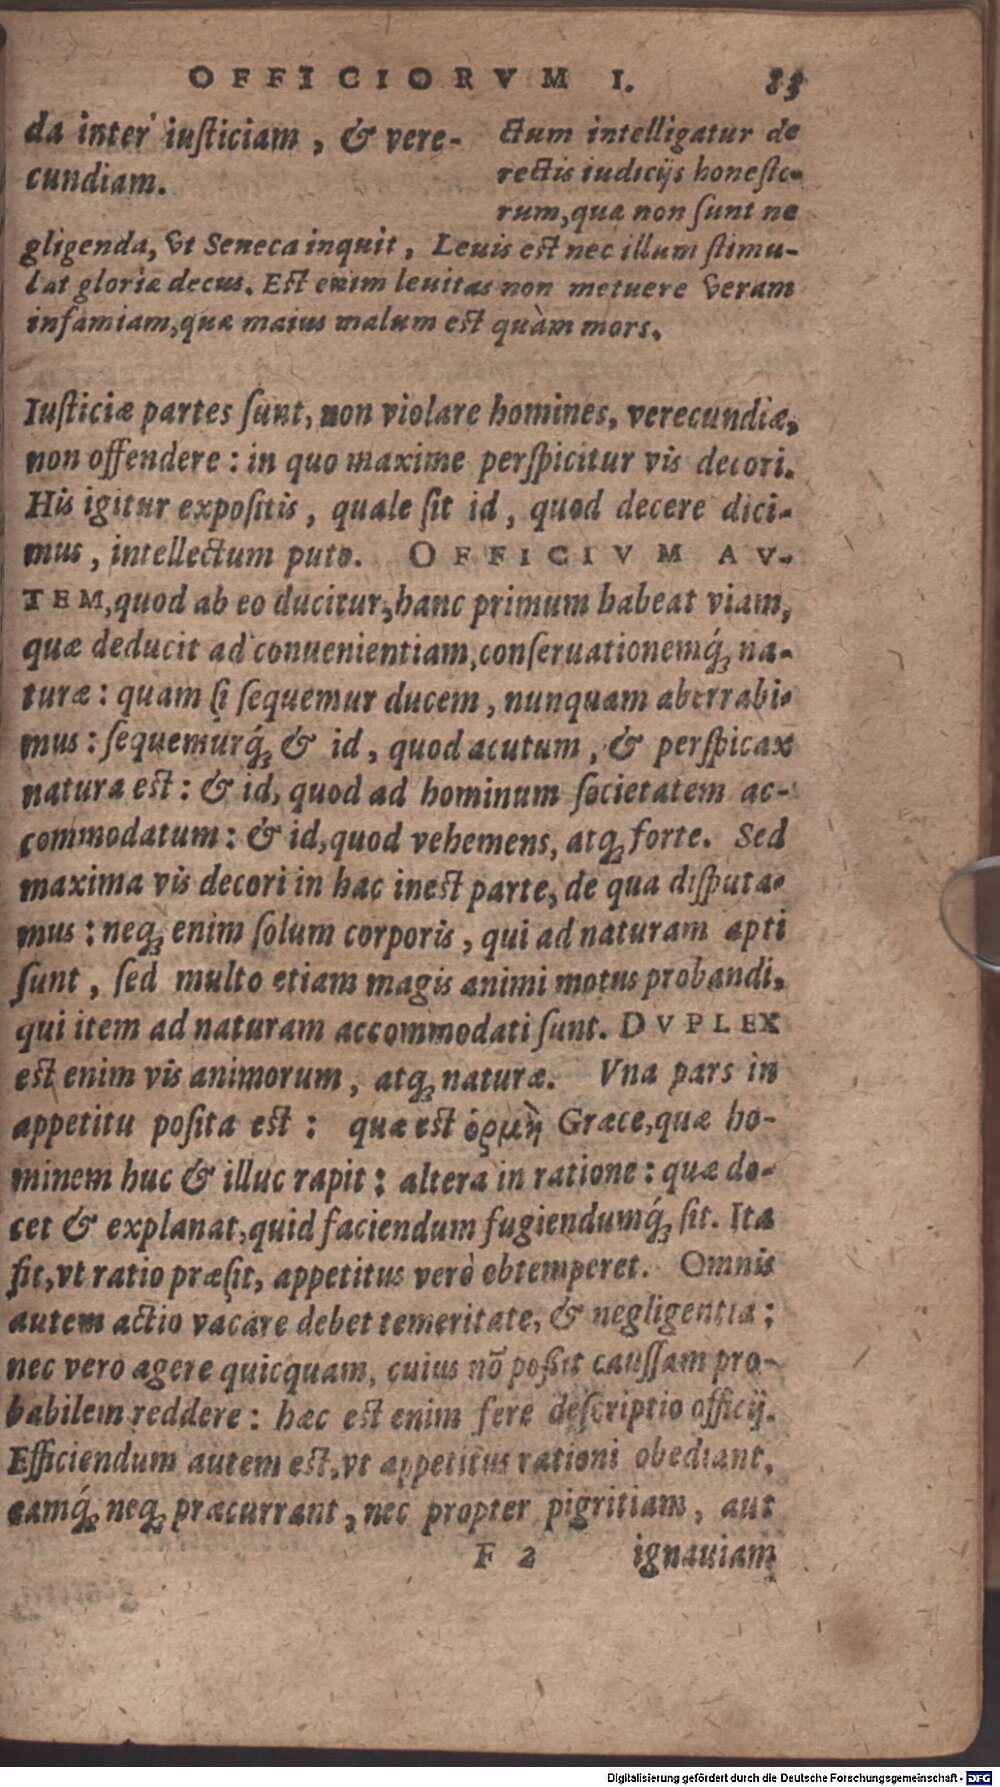 OFFICIORVM I. 83
da inter iusticiam, & vere-
cundiam.
ctum intelligatur de
rectis iudicijs honesto-
rum, quæ non sunt ne
gligenda, vt Seneca inquit, Leuis est nec illum stimu-
lat gloriæ decus. Est enim leuitas non metuere veram
infamiam, quæ maius malum est quàm mors.
Iusticiæ partes sunt, non violare homines, verecundiæ,
non offendere: in quo maxime perspicitur vis decori.
His igitur expositis, quale sit id, quod decere dici-
mus, intellectum puto. OFFICIVM AV-
TEM, quod ab eo ducitur, hanc primum habeat viam,
quæ deducit ad conuenientiam, conseruationemq́; na-
turæ: quam si sequemur ducem, nunquam aberrabi-
mus: sequemurq́; & id, quod acutum, & perspicax
natura est: & id, quod ad hominum societatem ac-
commodatum: & id, quod vehemens, atq; forte. Sed
maxima vis decori in hac inest parte, de qua disputa-
mus: neq; enim solum corporis, qui ad naturam apti
sunt, sed multo etiam magis animi motus probandi,
qui item ad naturam accommodati sunt. DVPLEX
est enim vis animorum, atq; naturæ. Vna pars in
appetitu posita est: quæ est ὁρμὴ Græce, quæ ho-
minem huc & illuc rapit: altera in ratione: quæ do-
cet & explanat, quid faciendum fugiendumq́; sit. Ita
fit, vt ratio præsit, appetitus verò obtemperet. Omnis
autem actio vacare debet temeritate, & negligentia:
nec vero agere quicquam, cuius nō possit caussam pro-
babilem reddere: hæc est enim fere descriptio officij.
Efficiendum autem est, vt appetitus rationi obediant,
eamq́; neq; præcurrant, nec propter pigritiam, aut
F 2 ignauiam
Digitalisierung gefördert durch die Deutsche Forschungsgemeinschaft - DFG